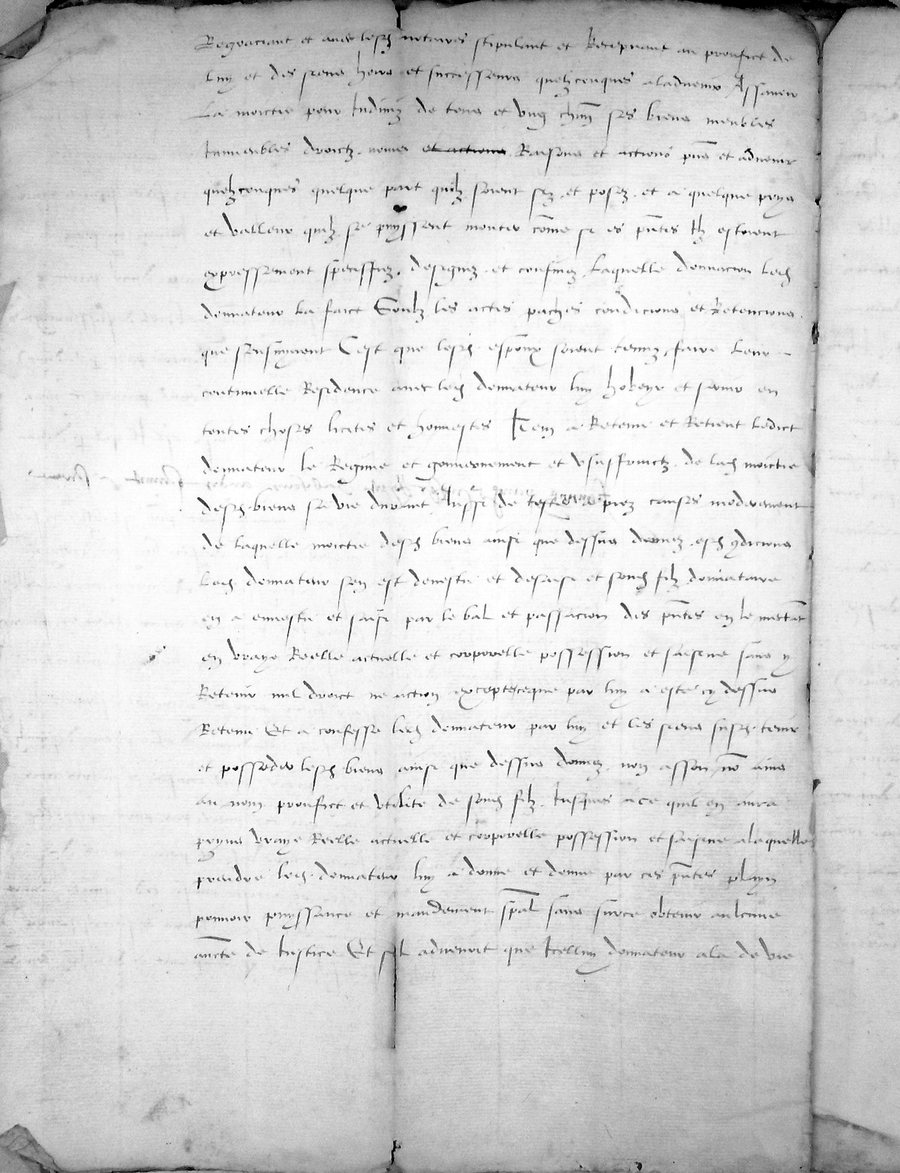 et avec lesd notaires stipulant et Recepvant au prouffict de
luy et des siens hoirs et successeurs quelzconques aladvenir Assavoir
La moictie pour Indiviz de tous et ung chun ses biens meubles
Immeubles droictz noms et actions Raisons et actions pns et advenir
quelzconques quelque part quilz soient sis et posez et a quelque prys
et valleur quilz se puyssent monter come si es pntes Ilz estoient
expressement speciffiez designez et confinez Laquelle donnacion led
donnateur La faict Soubz les actes paches condicions et Retencions
que sensuyvent Cest que lesd espoux soient tenuz faire leur
continuelle Residence avec led donnateur luy hobeyr et servir en
toutes choses licites et honnestes Item a Retenu et Retient Ledict
donnateur le Regime et gouvernement et usuffruictz de lad moictie
desd biens sa vie durant causes moderement
de laquelle moictie desd biens ainsi que dessus donnez esd condicions
Led donnateur sen est devestu et dessaisi et sond filz donnataire
en a envestu et saisi par le bal et passacion des pntes en le mectant
en vraye Reelle actuelle et corporelle possession et saisine sans y
Retenir nul droict ne action excepte ce que par luy a este cy dessus
Retenu Et a confesse led donnateur par luy et les siens susd tenir
et posseder lesd biens ainsi que dessus donnez non a son nom ains
au nom prouffict et utilite de sond filz Iusques a ce quil en aura
prins vraye Reelle actuelle et corporelle possession et saisine a laquelle
prendre led donnateur luy a donne et donne par ces pntes playn
pouvoir puyssance et mandement spal sans sur ce obtenir aulcune
aucte de Iustice Et sil advenoit que Icelluy donnateur ala de vie